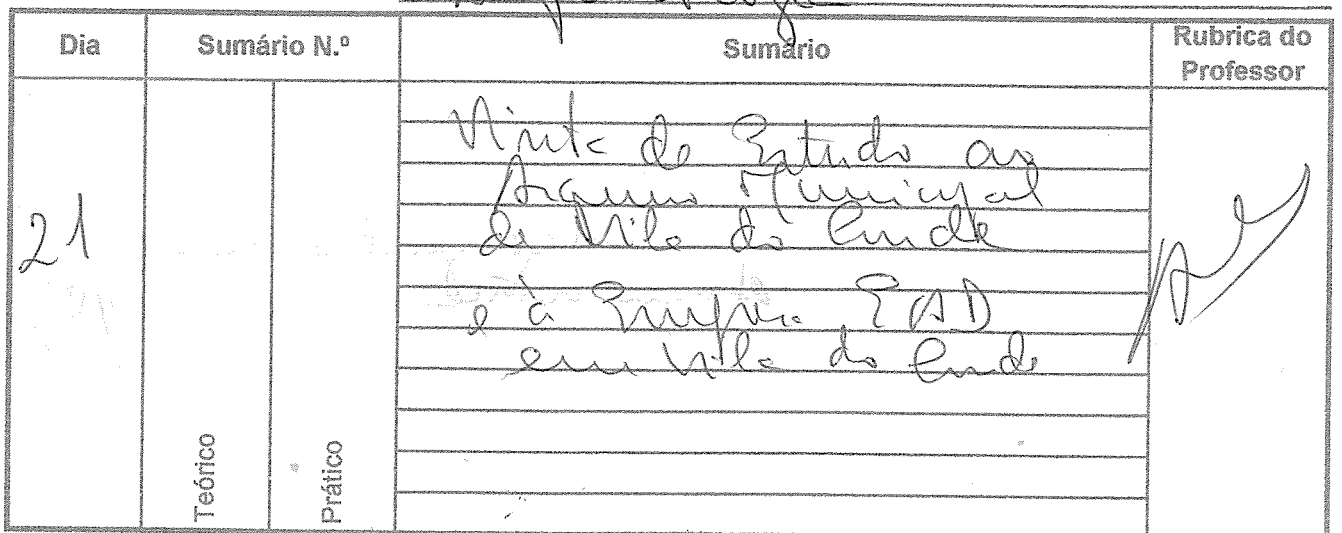 Dia Sumário N.º Sumário Rubrica do Professor
21
Teórico
Prático
Visita de Estudo ao
Arquivo Municipal
de Vila do Conde
e à Empresa EAD
em Vila do Conde